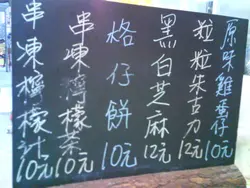 原味雞蛋仔10元
粒粒朱古力12元
黑白芝麻12元
格仔餅10元
串凍檸檬茶10元
串凍檸檬汁10元